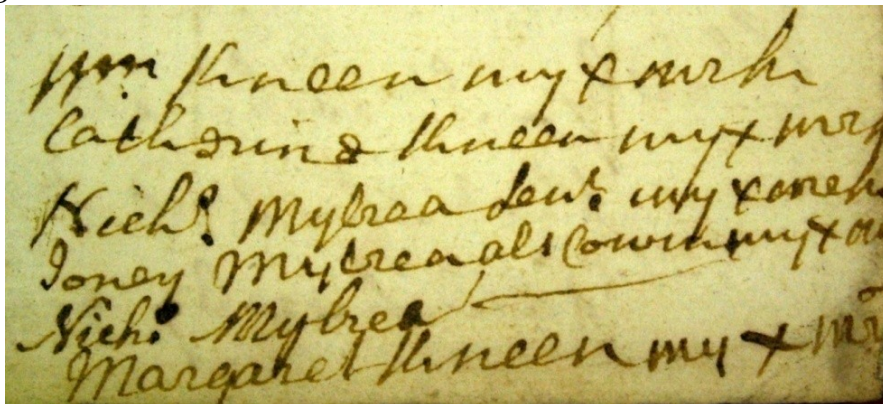 Wm Kneen my x mrk
Catherine Kneen my x mrk
Nichs Mylrea Senr my x mrk
Joney Mylrea als Cowin my x m
Nichs Mylrea
Margaret Kneen my x mr